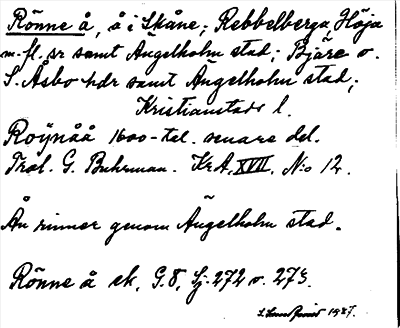 Rönne å, å i Skåne; Rebbelberga, Höja
m. fl. sr samt Ängelholm stad; Bjäre o.
S. Åsbo hdr samt Ängelholm stad;
Kristianstads l.
Roÿnåå 1600-tal. senare del.
Tral. G. Buhrman. KrA. XVII. No 12.
Ån rinner genom Ängelholm stad.
Rönne å ek. G.8, Sj. 272 o. 273.
1927.